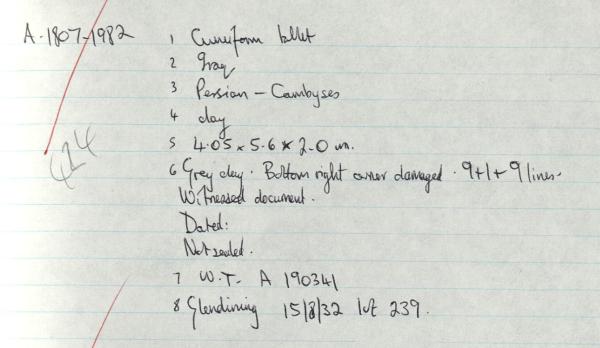 A.1807-1982
1 Cuneiform tablet
2 Iraq
3 Persian – Cambyses
4 clay
5 4.05 x 5.6 x 2.0 cm.
6 Grey clay. Bottom right corner damaged. 9+1+9 lines.
Witnessed document.
Dated:
Not sealed.
7 W.T. A 190341
8 Glendining 15/8/32 lot 239.
424